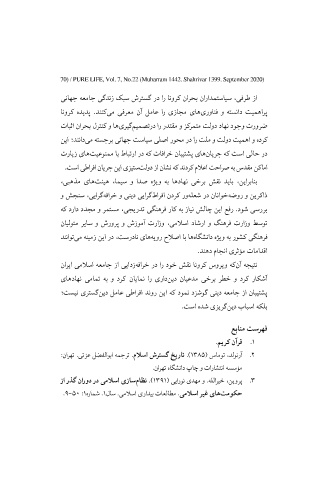 70) / PURE LIFE, Vol. 7, No.22 (Muharram 1442, Shahrivar 1399, September 2020)
از طرفی، سیاستمداران بحران کرونا را در گسترش سبک زندگی جامعه جهانی
پراهمیت دانسته و فناوری‌های مجازی را عامل آن معرفی می‌کنند. پدیده کرونا
ضرورت وجود نهاد دولت متمرکز و مقتدر را درتصمیم‌گیری‌ها و کنترل بحران اثبات
کرده و اهمیت دولت و ملت را در محور اصلی سیاست جهانی برجسته می‌دانند؛ این
در حالی است که جریان‌های پشتیبان خرافات که در ارتباط با ممنوعیت‌های زیارت
اماکن مقدس به صراحت اعلام کردند که نشان از دولت‌ستیزی این جریان افراطی است.
بنابراین، باید نقش برخی نهادها به ویژه صدا و سیما، هیئت‌های مذهبی،
ذاکرین و روضه‌خوانان در شعله‌ور کردن افراط‌گرایی دینی و خرافه‌گرایی، سنجش و
بررسی شود. رفع این چالش نیاز به کار فرهنگی تدریجی، مستمر و مجدد دارد که
توسط وزارت فرهنگ و ارشاد اسلامی، وزارت آموزش و پرورش و سایر متولیان
فرهنگی کشور به ویژه دانشگاه‌ها با اصلاح رویه‌های نادرست، در این زمینه می‌توانند
اقدامات مؤثری انجام دهند.
نتیجه آن‌که ویروس کرونا نقش خود را در خرافه‌زدایی از جامعه اسلامی ایران
آشکار کرد و خطر برخی مدعیان دین‌داری را نمایان کرد و به تمامی نهادهای
پشتیبان از جامعه دینی گوشزد نمود که این روند افراطی عامل دین‌گستری نیست؛
بلکه اسباب دین‌گریزی شده است.
فهرست منابع
۱. قرآن کریم.
۲. آرنولد، توماس (۱۳۸۵). تاریخ گسترش اسلام. ترجمه ابوالفضل عزتی. تهران:
مؤسسه انتشارات و چاپ دانشگاه تهران.
۳. پروین، خیرالله. و مهدی نورایی (۱۳۹۱). نظام‌سازی اسلامی در دوران گذار از
حکومت‌های غیر اسلامی. مطالعات بیداری اسلامی. سال۱. شماره۱: ۵۰-۹.